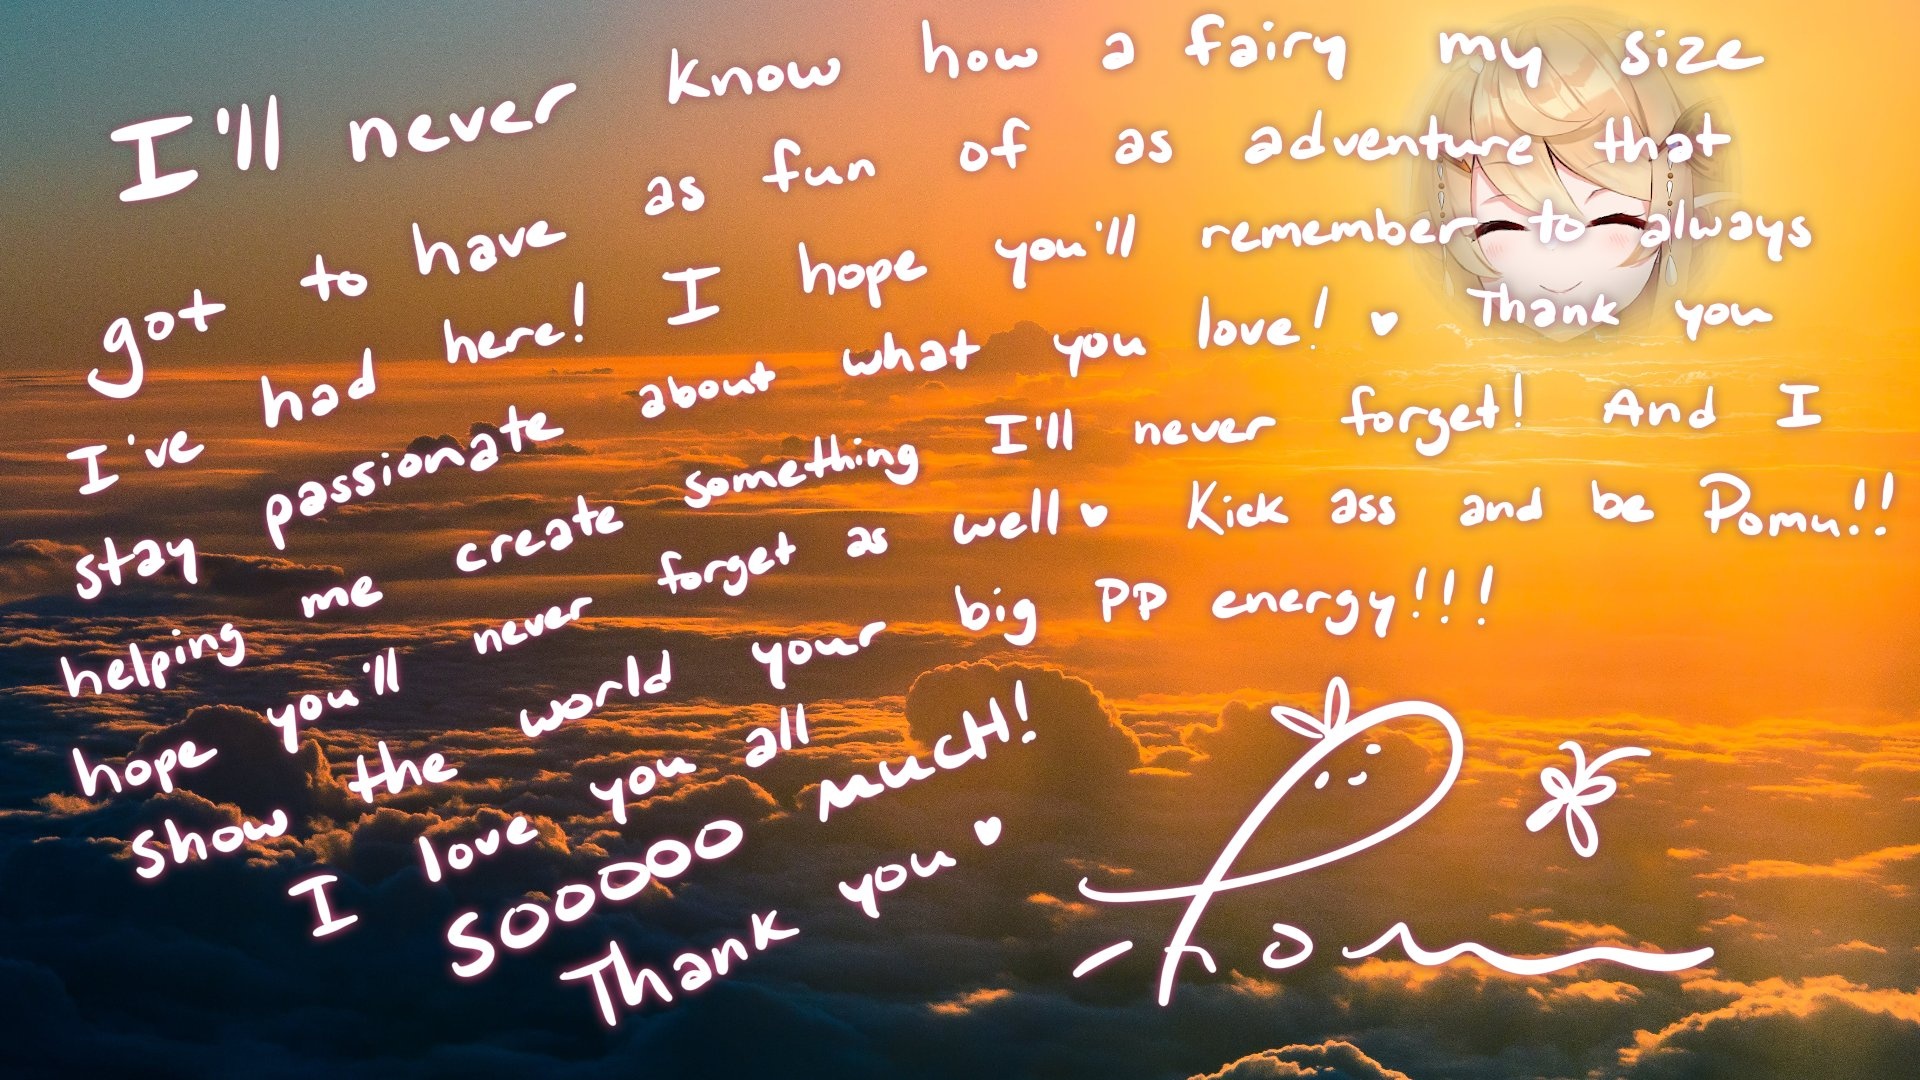 I'll never know how a fairy my size
got to have as fun of as adventure that
I've had here! I hope you'll remember to always
stay passionate about what you love! ♥ Thank you
helping me create something I'll never forget! And I
hope you'll never forget as well ♥ Kick ass and be Pomu!!
show the world your big PP energy!!!
I love you all
SOOOOO MUCH!
Thank you ♥
Pomu